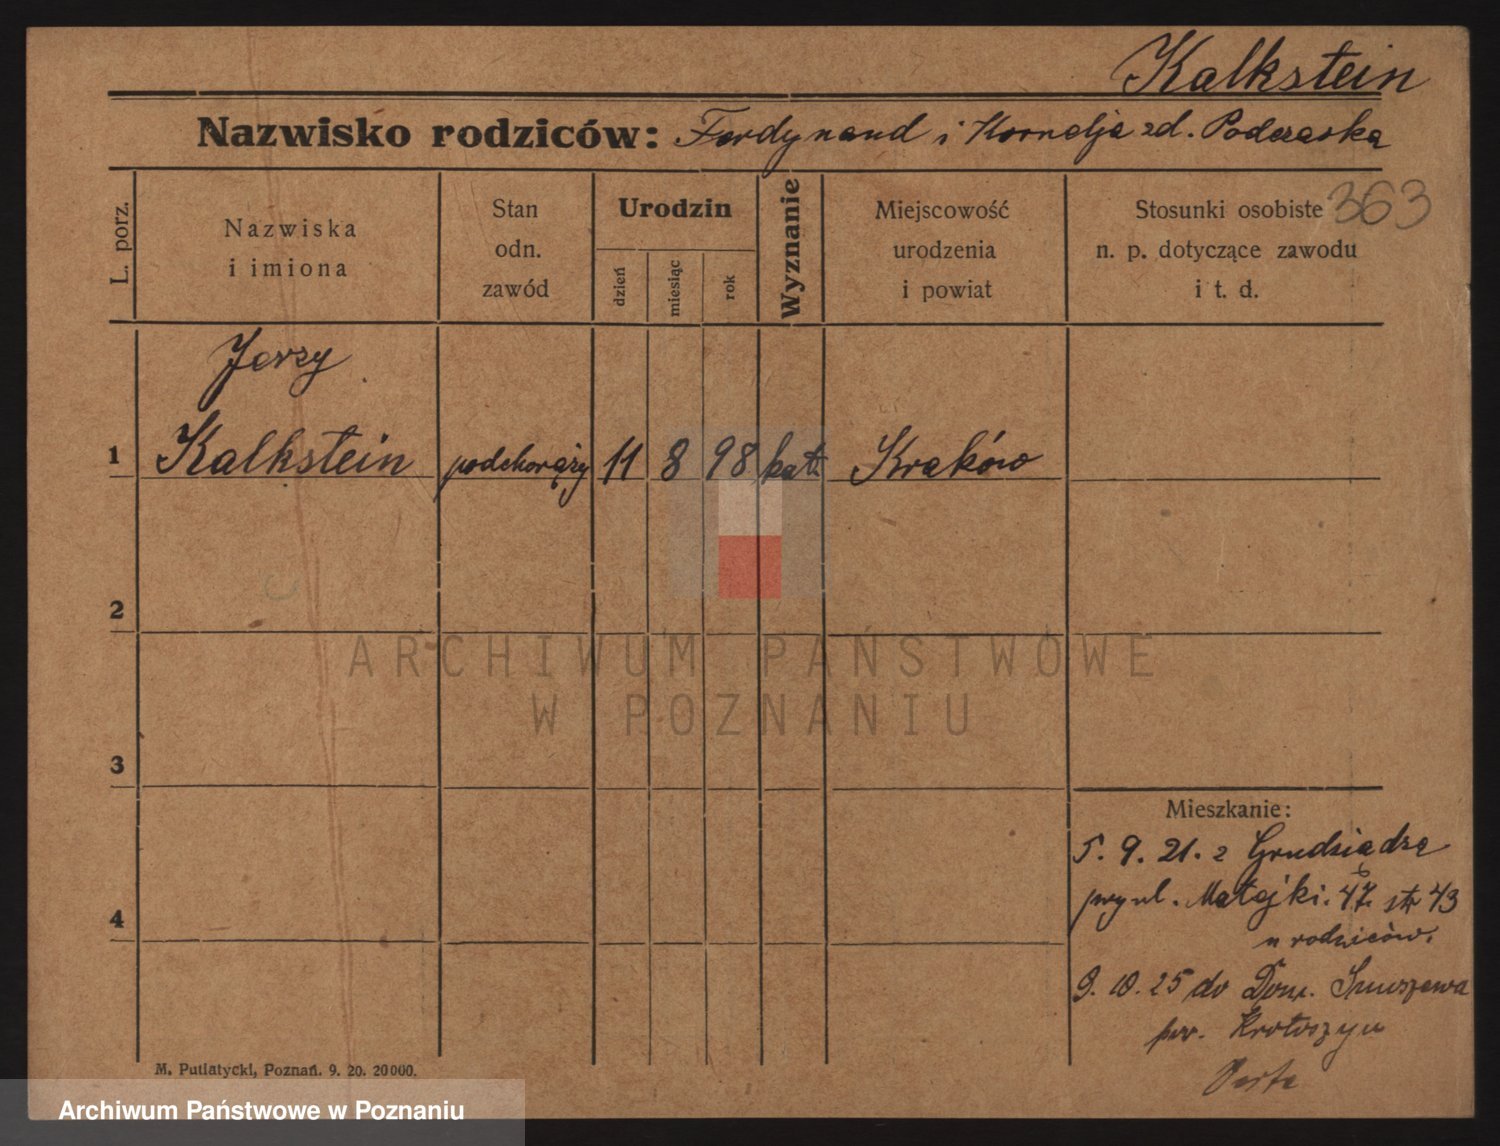 Kalkstein
Nazwisko rodziców: Ferdynand i Kornelja zd. Podczaska
L. porz.
Nazwiska
i imiona
Stan
odn.
zawód
Urodzin
dzień
miesiąc
rok
Wyznanie
Miejscowość
urodzenia
i powiat
Stosunki osobiste
n. p. dotyczące zawodu
i t. d.
363
Jerzy
1 Kalkstein podchorąży 11 8 98 kat. Kraków
2
ARCHIWUM PAŃSTWOWE
W POZNANIU
3
Mieszkanie:
5. 9. 21. z Grudziądza
przy ul. Matejki. 47. str 43
4
u rodziców.
9. 10. 25 do Dom.
pow. Krotoszyn
M. Putiatycki, Poznań. 9. 20. 20000.
Archiwum Państwowe w Poznaniu